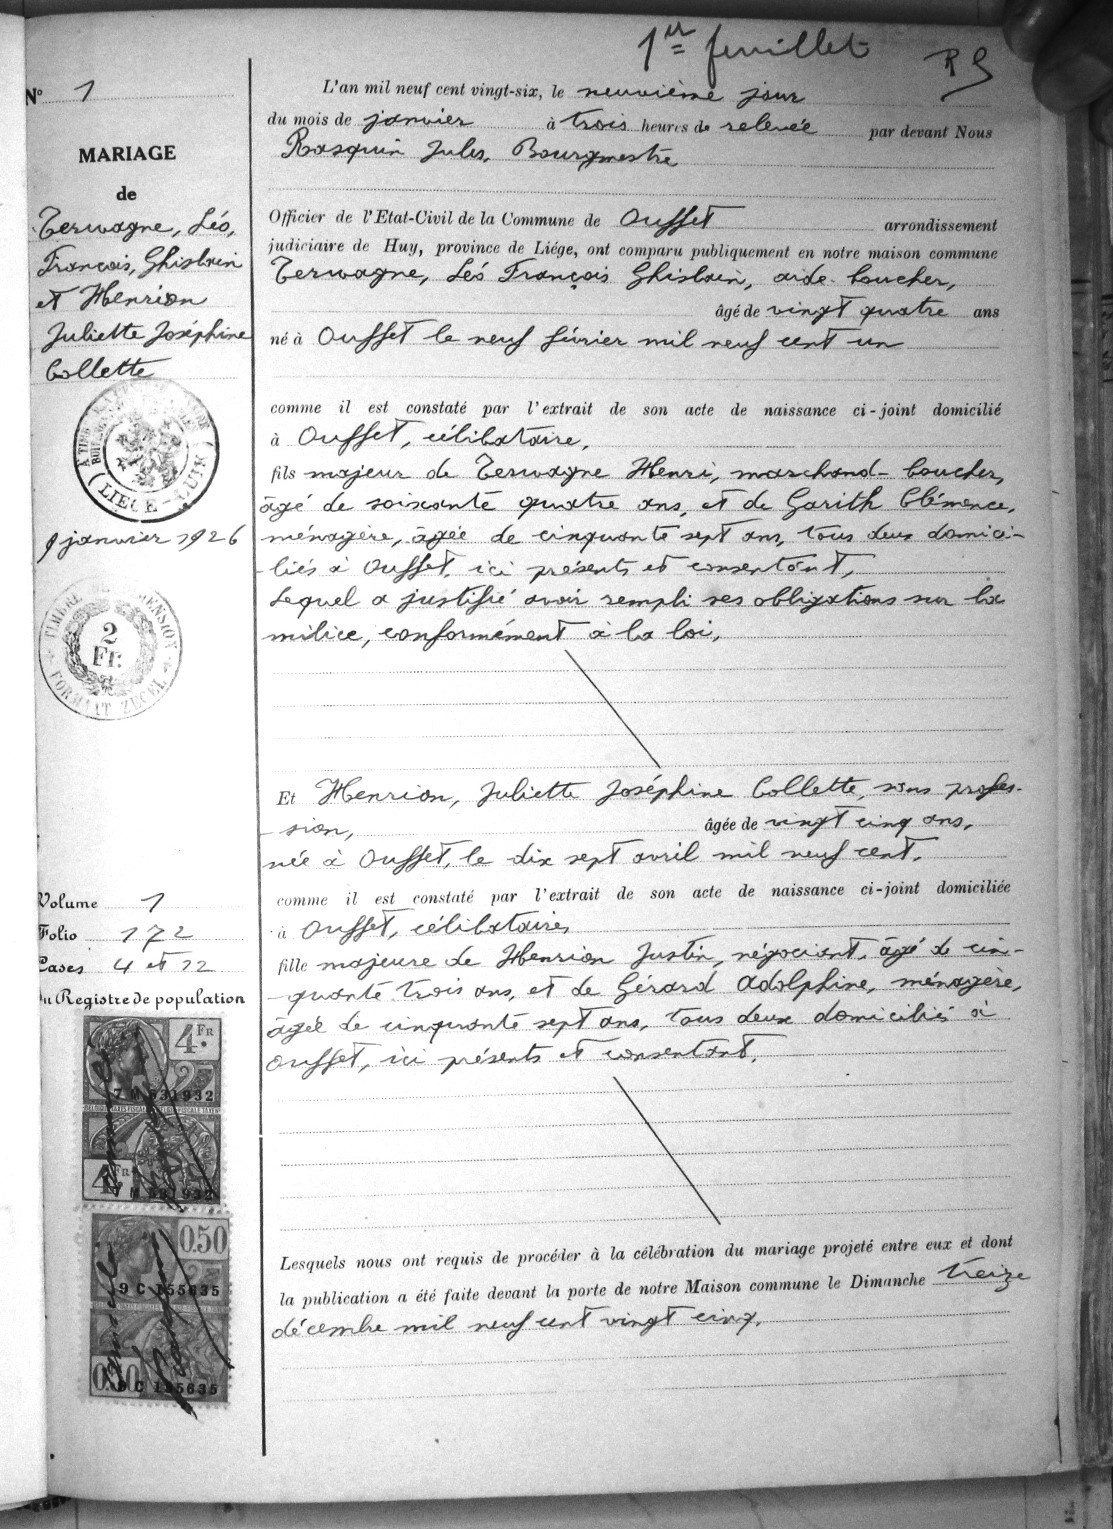 1er feuillet
RS
N° 1
MARIAGE
de
Terwagne, Léo,
François, Ghislain
et Henrion
Juliette Joséphine
Collette
LIEGE
9 janvier 1926
TIMBRE DE DIMENSION
2
Fr.
FORMAT ZEGEL
Volume 1
Folio 172
Cases 4 et 12
du Registre de population
4 FR
7 M 531932
4 FR
7 M 531932
0.50
9 C 155635
0.50
9 C 155635
L'an mil neuf cent vingt-six, le neuvième jour
du mois de janvier à trois heures de relevée par devant Nous
Rasquin Jules, Bourgmestre
Officier de l'Etat-Civil de la Commune de Ouffet arrondissement
judiciaire de Huy, province de Liége, ont comparu publiquement en notre maison commune
Terwagne, Léo François Ghislain, aide-boucher,
âgé de vingt quatre ans
né à Ouffet le neuf février mil neuf cent un
comme il est constaté par l'extrait de son acte de naissance ci-joint domicilié
à Ouffet, célibataire,
fils majeur de Terwagne Henri, marchand-boucher,
âgé de soixante quatre ans, et de Garith Clémence,
ménagère, âgée de cinquante sept ans, tous deux domici-
liés à Ouffet, ici présents et consentant,
Lequel a justifié avoir rempli ses obligations sur la
milice, conformément à la loi,
Et Henrion, Juliette Joséphine Collette, sans profes-
sion, âgée de vingt cinq ans,
née à Ouffet, le dix sept avril mil neuf cent,
comme il est constaté par l'extrait de son acte de naissance ci-joint domiciliée
à Ouffet, célibataire,
fille majeure de Henrion Justin, négociant, âgé de cin-
quante trois ans, et de Gérard Adolphine, ménagère,
âgée de cinquante sept ans, tous deux domiciliés à
Ouffet, ici présents et consentant.
Lesquels nous ont requis de procéder à la célébration du mariage projeté entre eux et dont
la publication a été faite devant la porte de notre Maison commune le Dimanche treize
décembre mil neuf cent vingt cinq.